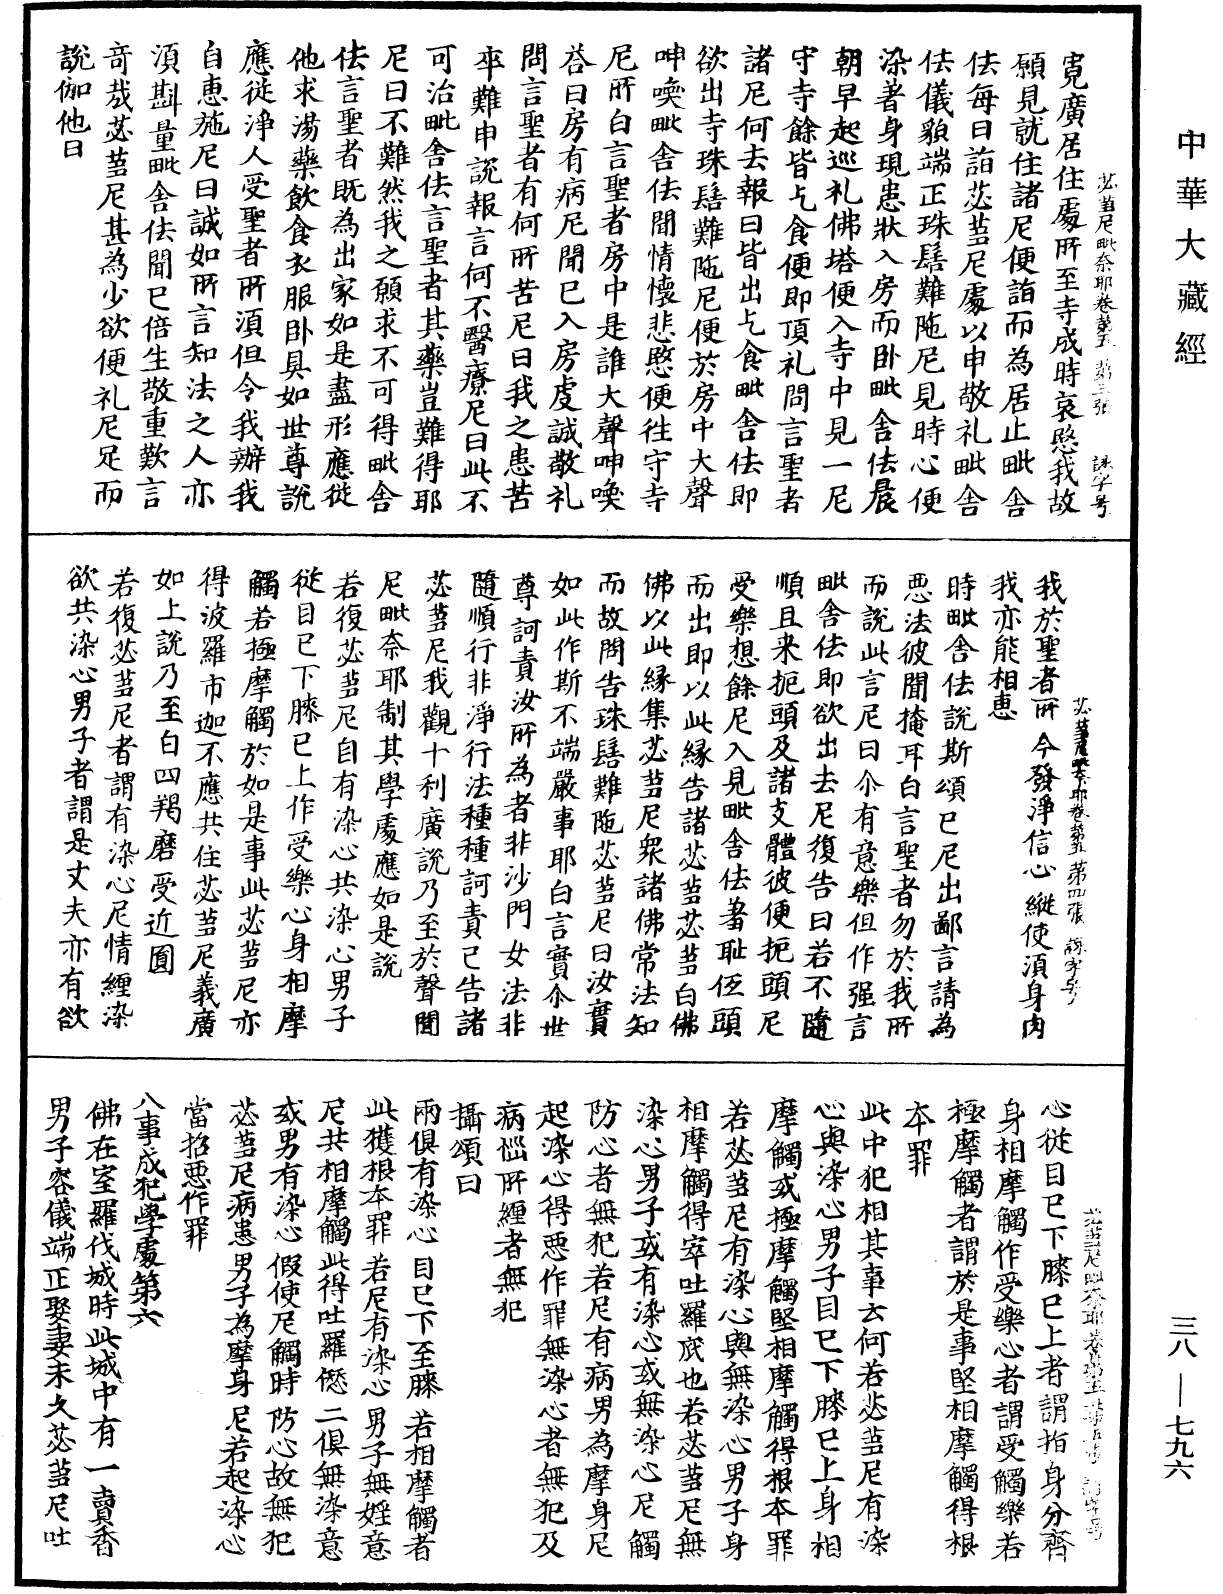 中華大藏經
苾芻尼毗奈耶卷第五　第三張　諫字号
寬廣居住處所至寺成時哀愍我故
願見就住諸尼便詣而為居止毗舍
佉每日詣苾芻尼處以申敬礼毗舍
佉儀貌端正珠髻難陁尼見時心便
染著身現患狀入房而臥毗舍佉晨
朝早起巡礼佛塔便入寺中見一尼
守寺餘皆乞食便即頂礼問言聖者
諸尼何去報曰皆出乞食毗舍佉即
欲出寺珠髻難陁尼便於房中大聲
呻喚毗舍佉聞情懷悲愍便往守寺
尼所白言聖者房中是誰大聲呻喚
荅曰房有病尼聞已入房虔誠敬礼
問言聖者有何所苦尼曰我之患苦
卒難申說報言何不醫療尼曰此不
可治毗舍佉言聖者其藥豈難得耶
尼曰不難然我之願求不可得毗舍
佉言聖者既為出家如是盡形應從
他求湯藥飲食衣服臥具如世尊說
應從淨人受聖者所須但令我辦我
自惠施尼曰誠如所言知法之人亦
須斟量毗舍佉聞已倍生敬重歎言
奇哉苾芻尼甚為少欲便礼尼足而
說伽他曰
苾芻尼毗奈耶卷第五　第四張　諫字号
我於聖者所　今發淨信心　縱使須身肉
我亦能相惠
時毗舍佉說斯頌已尼出鄙言請為
惡法彼聞掩耳白言聖者勿於我所
而說此言尼曰尒有意樂但作强言
毗舍佉即欲出去尼復告曰若不隨
順且来扼頭及諸支體彼便扼頭尼
受樂想餘尼入見毗舍佉著恥伍頭
而出即以此緣告諸苾芻苾芻白佛
佛以此緣集苾芻尼衆諸佛常法知
而故問告珠髻難陁苾芻尼曰汝實
如此作斯不端嚴事耶白言實尒世
尊訶責汝所為者非沙門女法非
隨順行非淨行法種種訶責已告諸
苾芻尼我觀十利廣說乃至於聲聞
尼毗奈耶制其學處應如是說
若復苾芻尼自有染心共染心男子
從目已下膝已上作受樂心身相摩
觸若極摩觸於如是事此苾芻尼亦
得波羅市迦不應共住苾芻尼義廣
如上說乃至白四羯磨受近圓
若復苾芻尼者謂有染心尼情纏染
欲共染心男子者謂是丈夫亦有欲
心從目已下膝已上者謂指身分齊
身相摩觸作受樂心者謂受觸樂若
極摩觸者謂於是事堅相摩觸得根
本罪
此中犯相其事云何若苾芻尼有染
心與染心男子目已下膝已上身相
摩觸或極摩觸堅相摩觸得根本罪
若苾芻尼有染心與無染心男子身
相摩觸得窣吐羅底也若苾芻尼無
染心男子或有染心或無染心尼觸
防心者無犯若尼有病男為摩身尼
起染心得惡作罪無染心者無犯及
病惱所纏者無犯
攝頌曰
兩俱有染心　目已下至膝　若相摩觸者
此獲根本罪　若尼有染心　男子無婬意
尼共相摩觸　此得吐羅𠎝　二俱無染意
或男有染心　假使尼觸時　防心故無犯
苾芻尼病患　男子為摩身　尼若起染心
當招惡作罪
八事成犯學處第六
佛在室羅伐城時此城中有一賣香
男子容儀端正娶妻未久苾芻尼吐
三八—七九六